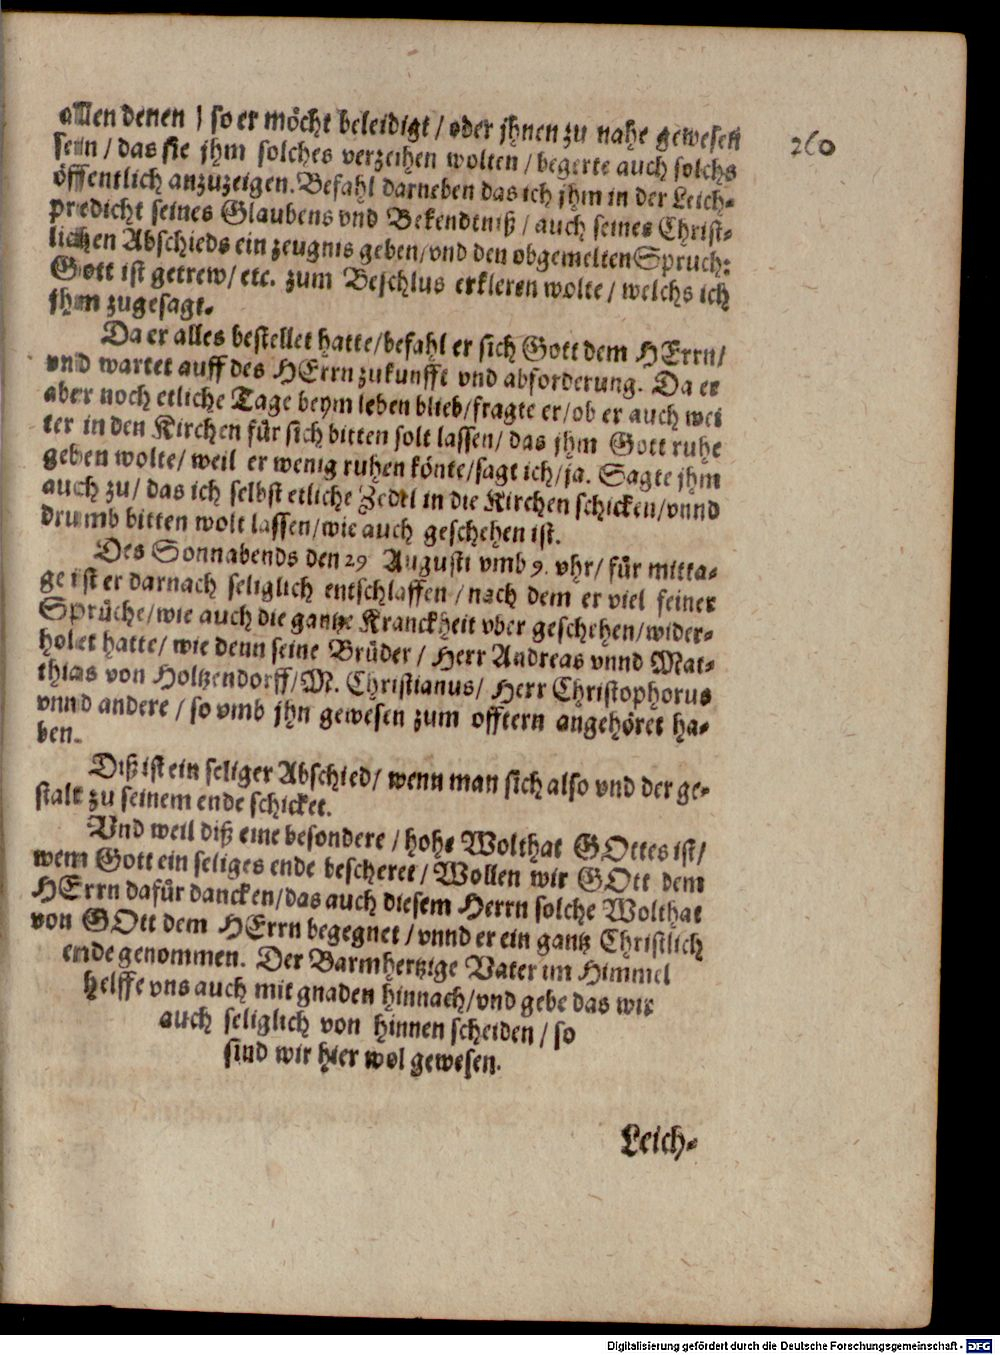 allen denen / so er möcht beleidigt / oder jhnen zu nahe gewesen
sein / das sie jhm solches verzeihen wolten / begerte auch solchs
öffentlich anzuzeigen. Befahl darneben das ich jhm in der Leich-
predicht seines Glaubens vnd Bekendtniß / auch seines Christ-
lichen Abschieds ein zeugnis geben / vnd den obgemelten Spruch:
Gott ist getrew / etc. zum Beschlus erkleren wolte / welchs ich
jhm zugesagt.
Da er alles bestellet hatte / befahl er sich Gott dem HErrn /
vnd wartet auff des HErrn zukunfft vnd abforderung. Da er
aber noch etliche Tage beym leben blieb / fragte er / ob er auch wei
ter in den Kirchen für sich bitten solt lassen / das jhm Gott ruhe
geben wolte / weil er wenig ruhen könte / sagt ich / ja. Sagte jhm
auch zu / das ich selbst etliche Zedel in die Kirchen schicken / vnnd
drumb bitten wolt lassen / wie auch geschehen ist.
Des Sonnabends den 29 Augusti vmb 9. vhr / für mitta-
ge ist er darnach seliglich entschlaffen / nach dem er viel feiner
Sprüche / wie auch die gantze Kranckheit vber geschehen / wider-
holet hatte / wie denn seine Brüder / Herr Andreas vnnd Mat-
thias von Holtzendorff / M. Christianus / Herr Christophorus
vnnd andere / so vmb jhn gewesen zum offtern angehöret ha-
ben.
Diß ist ein seliger Abschied / wenn man sich also vnd der ge-
stalt zu seinem ende schicket.
Vnd weil diß eine besondere / hohe Wolthat GOttes ist /
wem Gott ein seliges ende bescheret / Wollen wir GOtt dem
HErrn dafür dancken / das auch diesem Herrn solche Wolthat
von GOtt dem HErrn begegnet / vnnd er ein gantz Christlich
ende genommen. Der Barmhertzige Vater im Himmel
helffe vns auch mit gnaden hinnach / vnd gebe das wir
auch seliglich von hinnen scheiden / so
sind wir hier wol gewesen.
Leich-
260
Digitalisierung gefördert durch die Deutsche Forschungsgemeinschaft - DFG